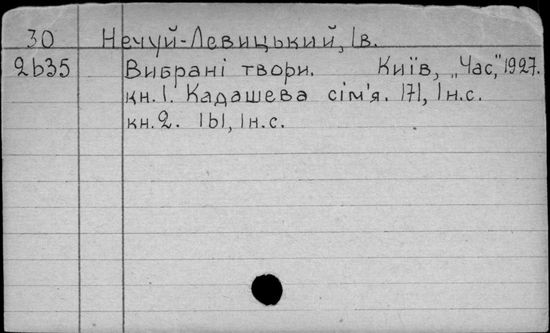 30 Нечуй-Левицький, Ів.
2635 Вибрані твори. Київ, „Час," 1927.
кн. 1. Кадашева сім'я. 171, 1 н.с.
кн. 2. 161, 1 н.с.